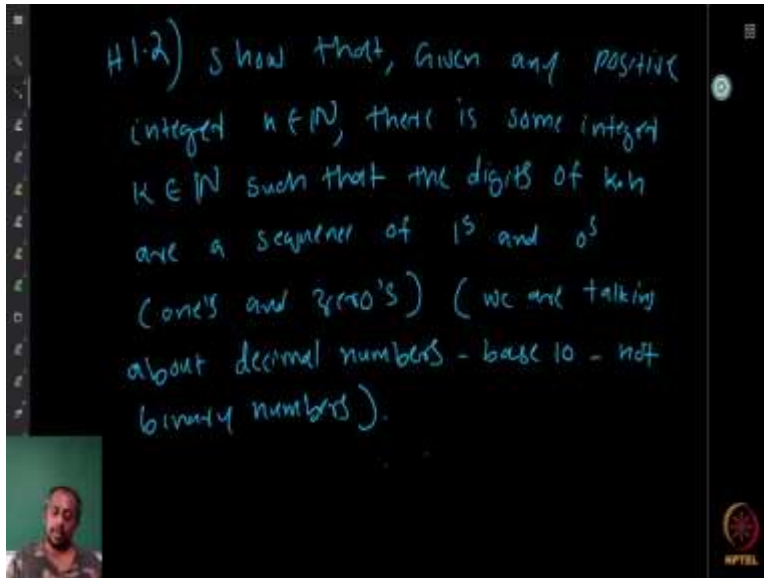 H1.2) show that, Given any positive
integer n ∈ ℕ, there is some integer
k ∈ ℕ such that the digits of k.n
are a sequence of 1s and 0s
(one's and zero's) (we are talking
about decimal numbers - base 10 - not
binary numbers).
NPTEL